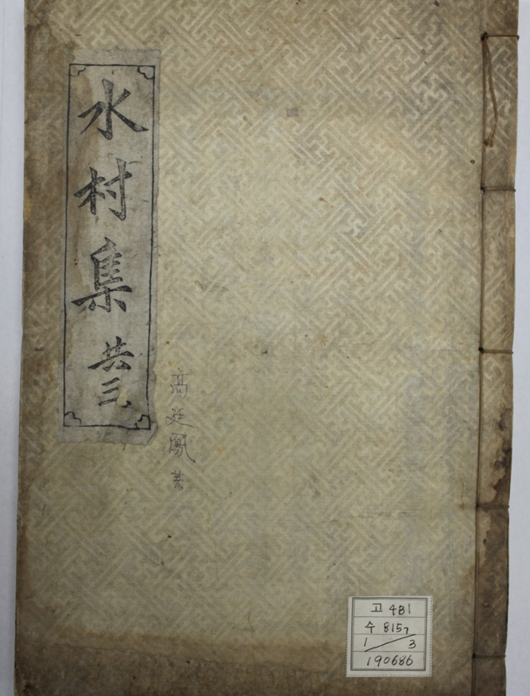 水村集 共三
高廷鳳 著
고 4B1
수 815ㄱ
1/3
190686